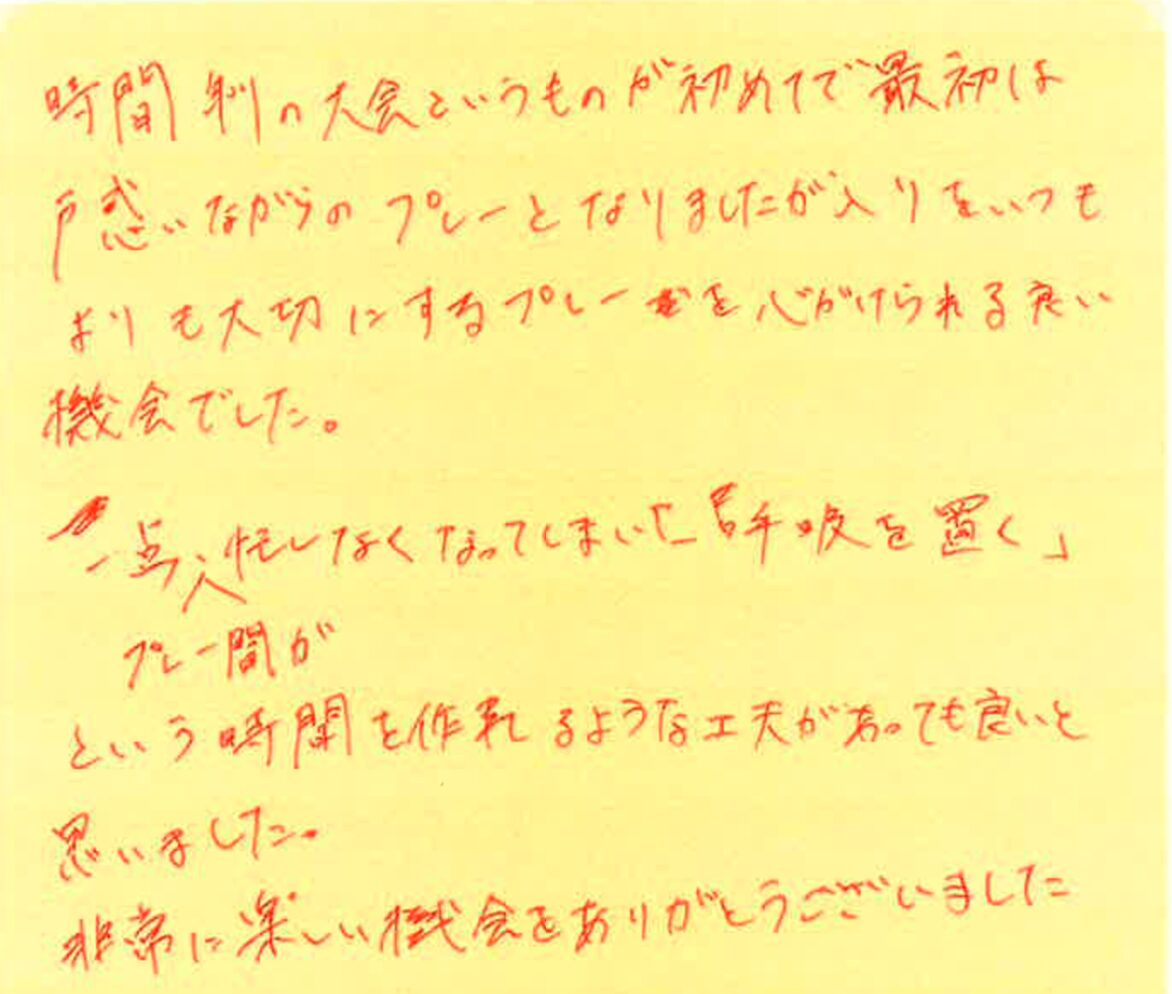 時間制の大会というものが初めてで最初は
戸惑いながらのプレーとなりましたが入りをいつも
よりも大切にするプレーを心がけられる良い
機会でした。
一点、忙しなくなってしまい「一呼吸を置く」
プレー間が
という時間を作れるような工夫があっても良いと
思いました。
非常に楽しい機会をありがとうございました